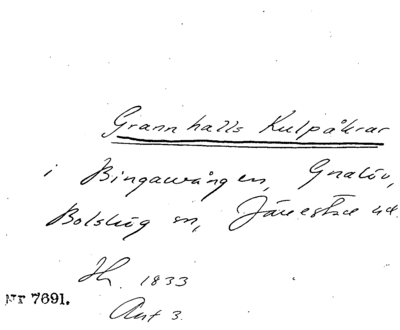 Grannhalls Kulpåkrar
i Bingavången, Gnalöv,
Bolshög sn, Järrestad hd.
Sk. 1833
Nr 7691.
Akt 3.